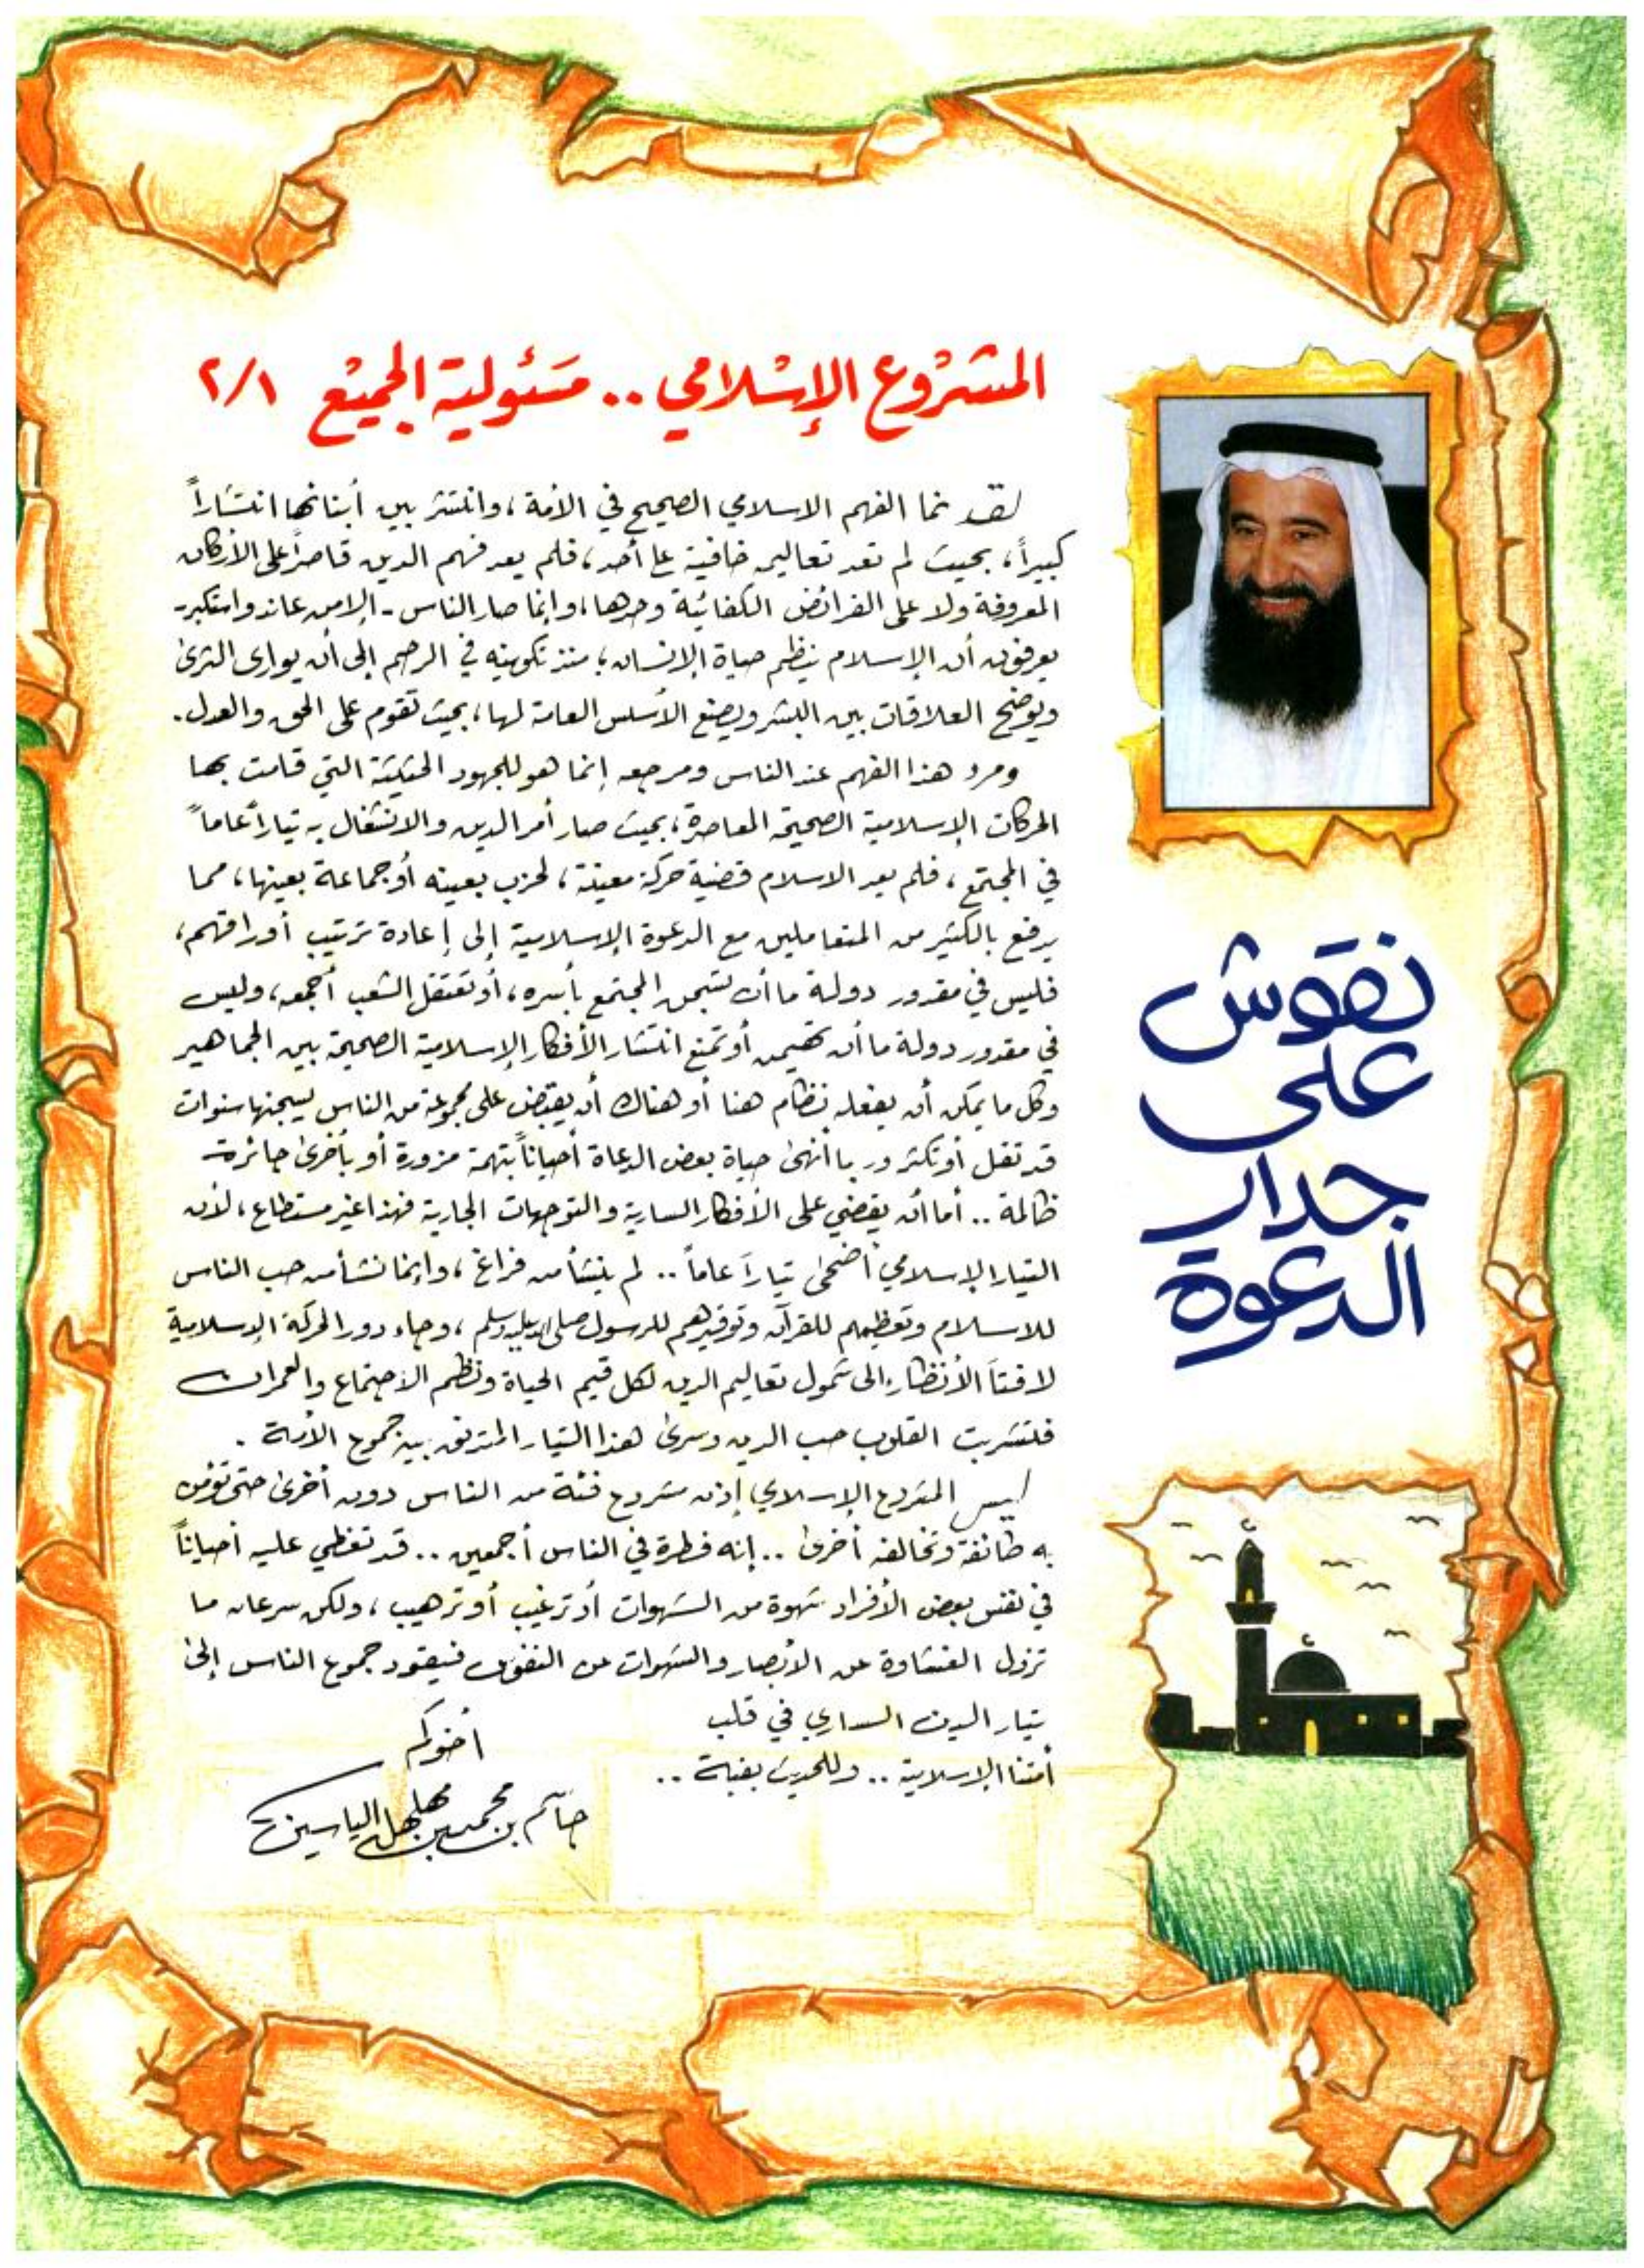 المشروع الإسلامي .. مسئولية الجميع ٢/١
لقد نما الفهم الاسلامي الصحيح في الأمة، وانتشر بين أبنائها انتشاراً
كبيراً، بحيث لم تعد تعاليمه خافية على أحد، فلم يعد فهم الدين قاصراً على الأركان
المعروفة ولا على الفرائض الكفائية وحدها، وإنما صار الناس - إلا من عاند واستكبر -
يعرفون أن الإسلام ينظم حياة الإنسان؛ منذ تكوينه في الرحم إلى أن يوارى الثرى
ويوضح العلاقات بين البشر ويضع الأسس العامة لها، بحيث تقوم على الحق والعدل.
ومرد هذا الفهم عند الناس ومرجعه إنما هو للجهود الحثيثة التي قامت بها
الحركات الإسلامية الصحيحة المعاصرة، بحيث صار أمر الدين والانشغال به تياراً عاماً
في المجتمع، فلم يعد الاسلام قضية حركة معينة، لحزب بعينه أو جماعة بعينها، مما
يدفع بالكثير من المتعاملين مع الدعوة الإسلامية إلى إعادة ترتيب أوراقهم،
فليس في مقدور دولة ما أن تسجن المجتمع بأسره، أو تعتقل الشعب أجمعه، وليس
في مقدور دولة ما أن تهيمن أو تمنع انتشار الأفكار الإسلامية الصحيحة بين الجماهير
وكل ما يمكن أن يفعله نظام هنا أو هناك أن يقبض على مجموعة من الناس ليسجنها سنوات
قد تقل أو تكثر وربما أنهى حياة بعض الدعاة أحياناً بتهمة مزورة أو بأخرى جائرة
ظالمة .. أما أن يقضي على الأفكار السارية والتوجهات الجارية فهذا غير مستطاع، لأن
التيار الإسلامي أضحى تياراً عاماً .. لم ينشأ من فراغ، وإنما نشأ من حب الناس
للاسلام وتعظيمهم للقرآن وتوقيرهم للرسول صلى الله عليه وسلم، وجاء دور الحركة الإسلامية
لافتاً الأنظار إلى شمول تعاليم الدين لكل قيم الحياة ونظم الاجتماع والعمران
فتشربت القلوب حب الدين وسرى هذا التيار المتدفق بين جموع الأمة .
ليس المشروع الإسلامي إذن مشروع فئة من الناس دون أخرى حتى تؤمن
به طائفة وتخالفه أخرى .. إنه فطرة في الناس أجمعين .. قد تغطي عليه أحياناً
في نفس بعض الأفراد شهوة من الشهوات أو ترغيب أو ترهيب، ولكن سرعان ما
تزول الغشاوة عن الأبصار والشهوات عن النفوس فيقود جموع الناس إلى
تيار الدين الساري في قلب
أمتنا الإسلامية .. وللحديث بقية ..
أخوكم
جاسم بن محمد بن مهلهل الياسين
نقوش
على
جدار
الدعوة